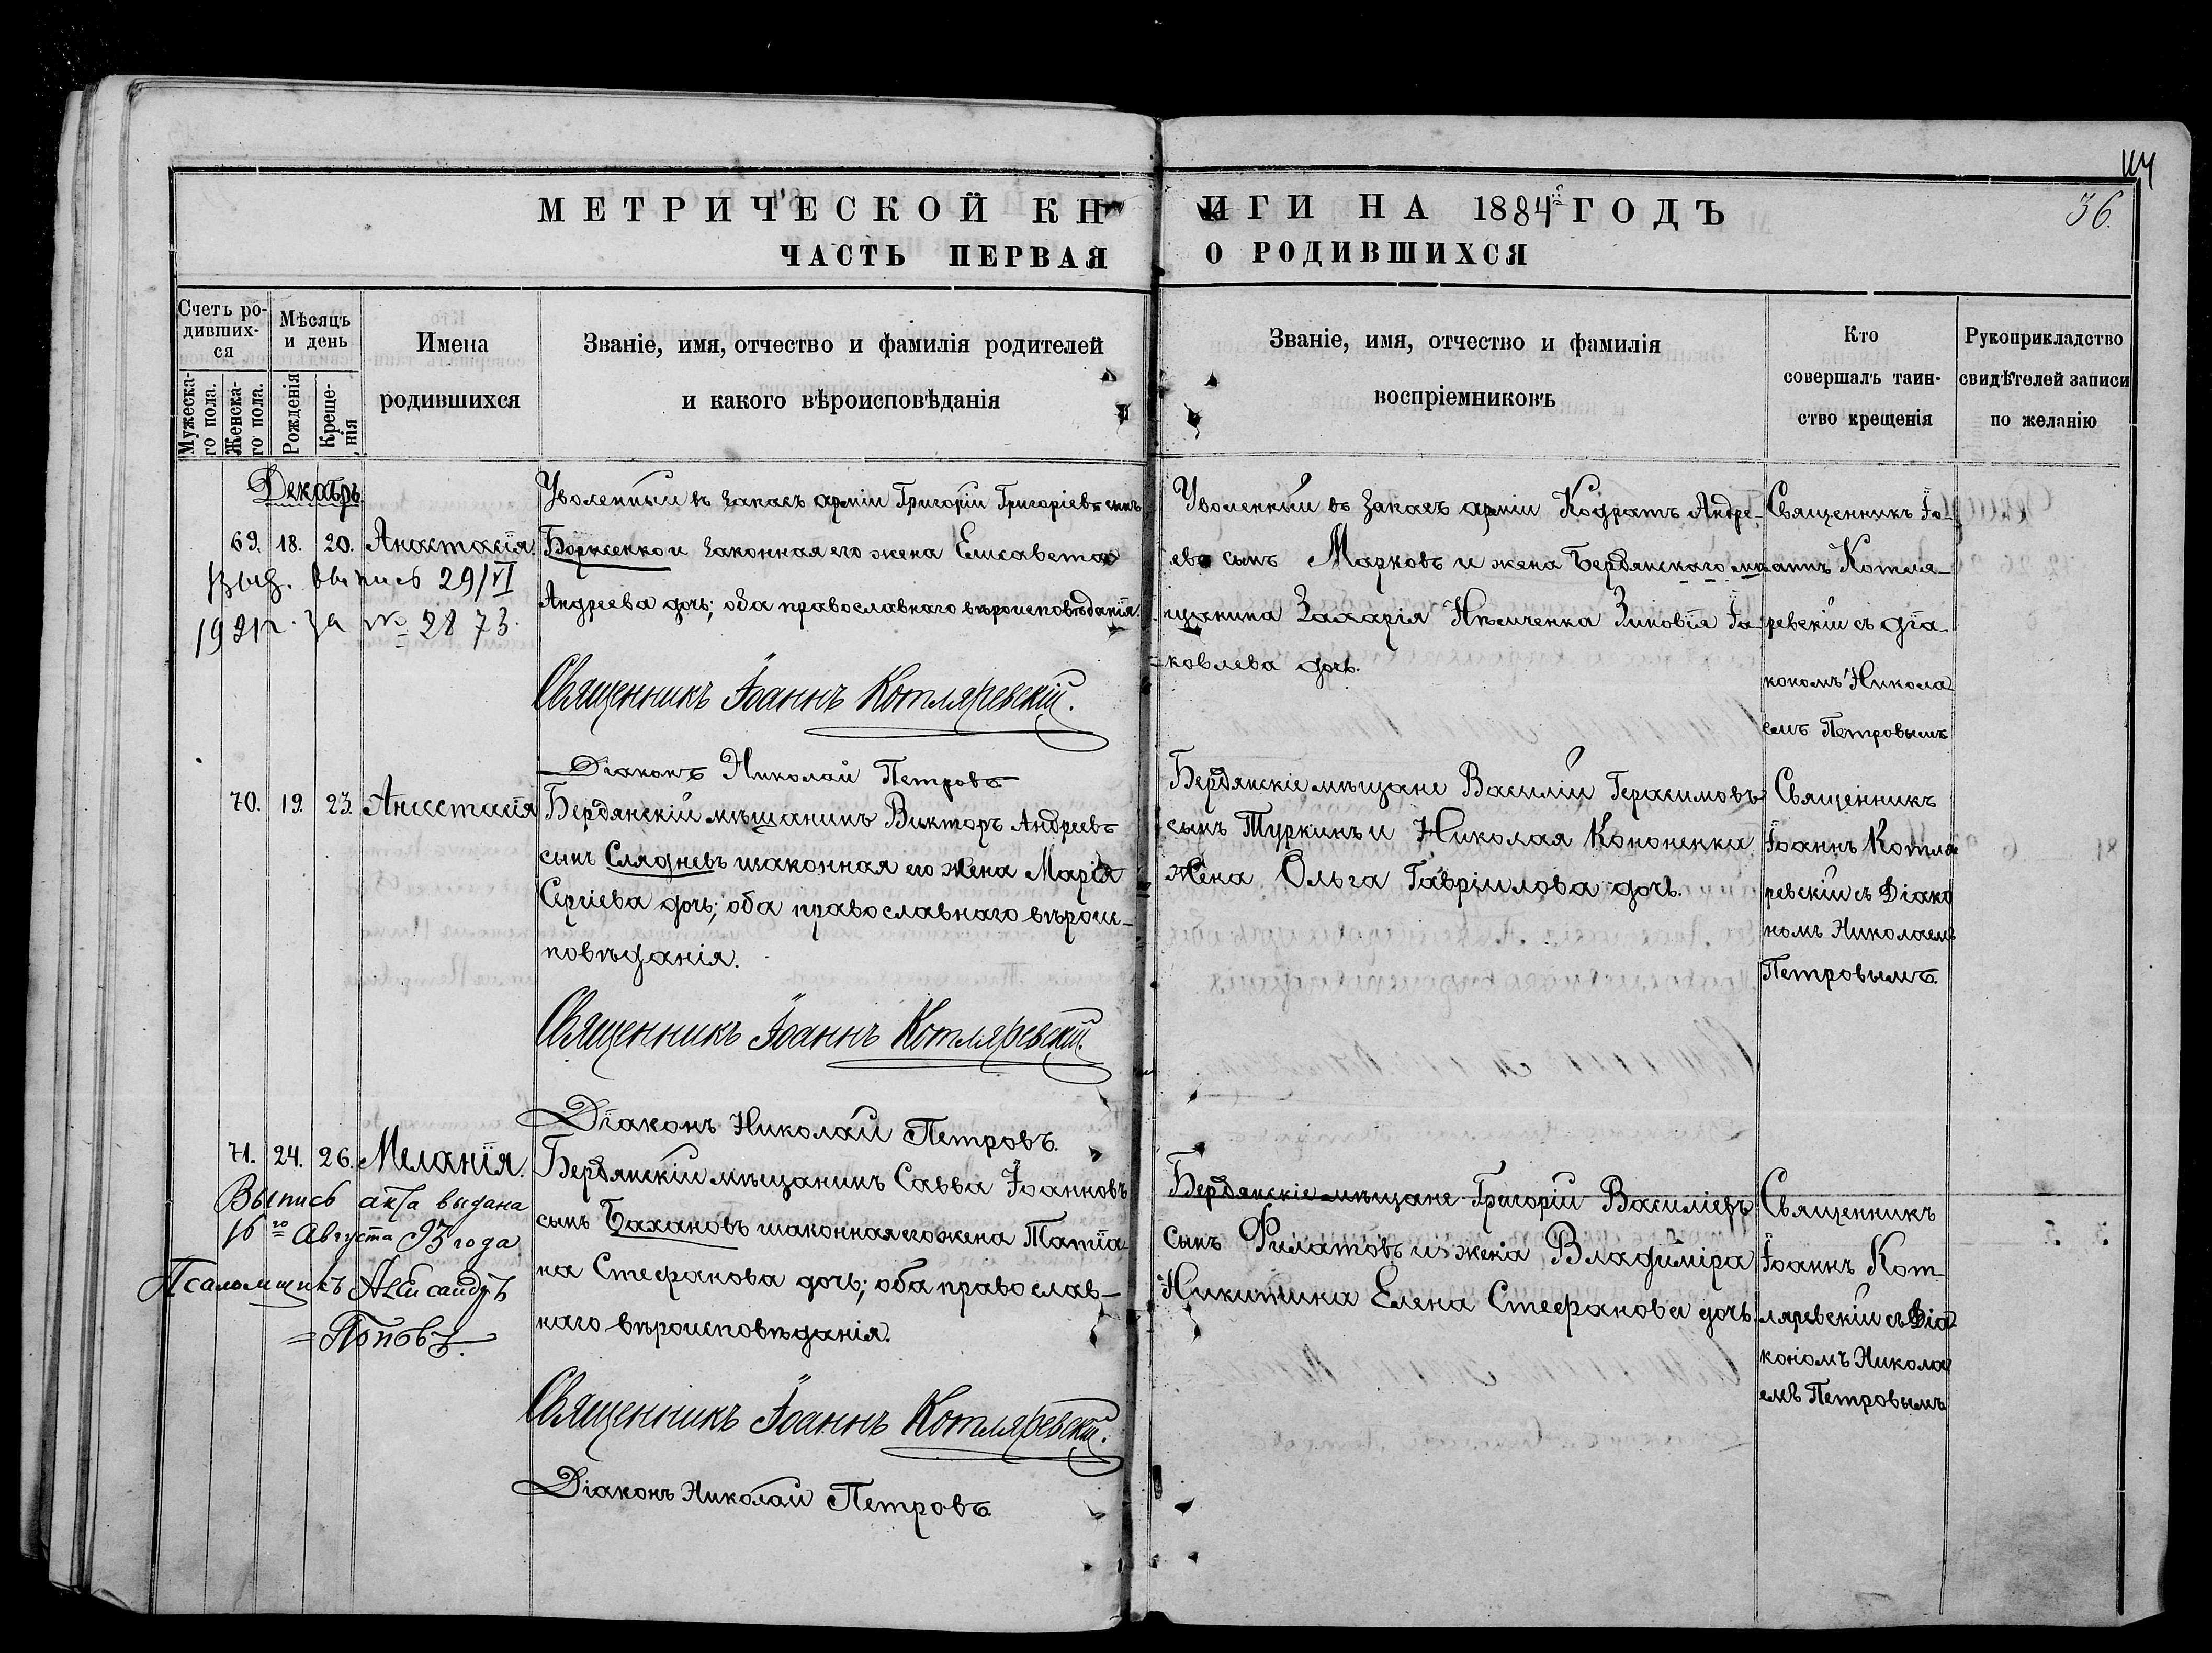 114
МЕТРИЧЕСКОЙ КНИГИ НА 1884й ГОДЪ
36.
ЧАСТЬ ПЕРВАЯ О РОДИВШИХСЯ
Счетъ родившихся
Мужескаго пола.
Женскаго пола.
Мѣсяцъ и день
Рожденія
Крещенія
Имена
родившихся
Званіе, имя, отчество и фамилія родителей
и какого вѣроисповѣданія
Званіе, имя, отчество и фамилія
воспріемниковъ
Кто
совершалъ таин-
ство крещенія
Рукоприкладство
свидѣтелей записи
по желанію
Декабрь
69. 18. 20. Анастасія.
Выд. выпись 29/VI
1921г. за № 2873.
Уволенный въ запасъ арміи Григорій Григоріевъ сынъ
Борисенко и законная его жена Елисавета
Андреева дочь; оба православнаго вѣроисповѣданія.
Священникъ Іоаннъ Котляревскій.
Діаконъ Николай Петровъ
Уволенный въ запасъ арміи Кодратъ Андре-
евъ сынъ Марковъ и жена Бердянскаго мѣ-
щанина Захарія Нѣмченка Зиновія Іа-
ковлева дочь.
Священникъ Іо-
аннъ Котля-
ревскій съ діа-
кономъ Никола-
емъ Петровымъ
70. 19. 23. Анастасія
Бердянскій мѣщанинъ Викторъ Андреевъ
сынъ Слядневъ изаконная его жена Марія
Сергіева дочь; оба православнаго вѣроис-
повѣданія.
Священникъ Іоаннъ Котляревскій.
Діаконъ Николай Петровъ.
Бердянскіе мѣщане Василій Герасимовъ
сынъ Туркинъ и Николая Кононенка
жена Ольга Гавріилова дочь.
Священникъ
Іоаннъ Котля
ревскій съ Діако
номъ Николаемъ
Петровымъ.
71. 24. 26. Меланія.
Выпись акта выдана
16го Августа 93 года
Псаломщикъ Александръ
Поповъ.
Бердянскій мѣщанинъ Савва Іоанновъ
сынъ Бахановъ изаконная его жена Татіа-
на Стефанова дочь; оба православ-
наго вѣроисповѣданія.
Священникъ Іоаннъ Котляревскій.
Діаконъ Николай Петровъ
Бердянскіе мѣщане Григорій Василіевъ
сынъ Филатовъ и жена Владиміра
Никитина Елена Стефанова дочь.
Священникъ
Іоаннъ Кот-
ляревскій съ Діа-
кономъ Никола
емъ Петровымъ